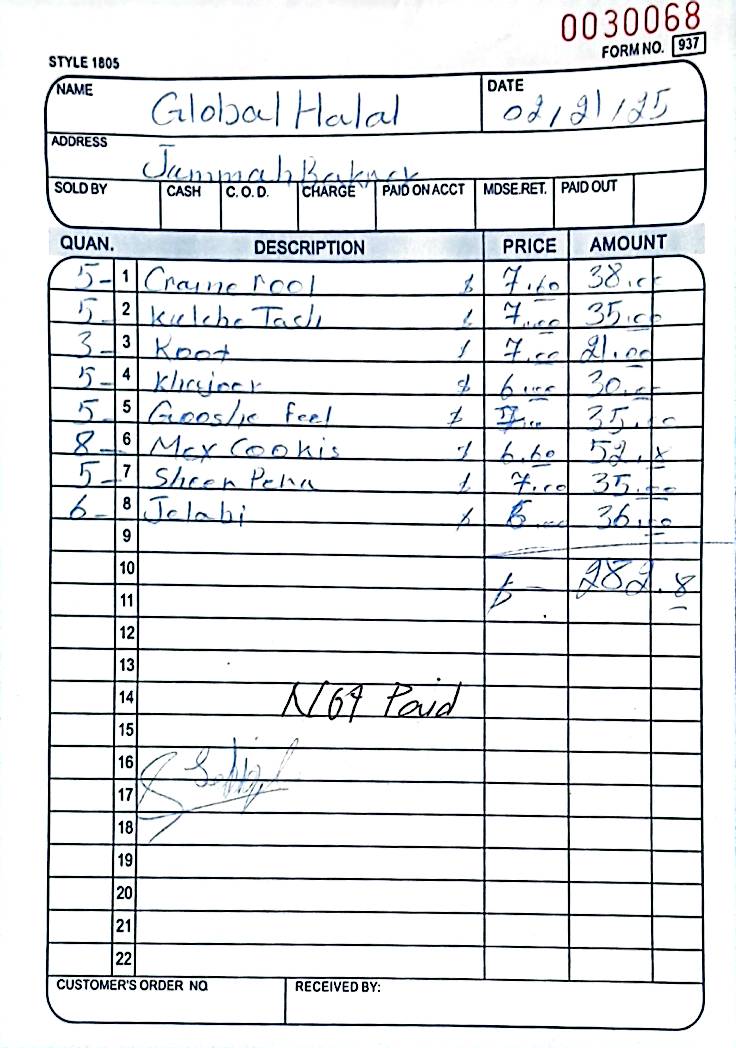 0030068
FORM NO. 937
STYLE 1805
NAME Global Halal DATE 02/21/25
ADDRESS Jummah Baknek
SOLD BY CASH C. O. D. CHARGE PAID ON ACCT MDSE. RET. PAID OUT
QUAN. DESCRIPTION PRICE AMOUNT
5- 1 Craine rool $ 7.60 38.00
5- 2 Kulche Tash $ 7.00 35.00
3- 3 Koot $ 7.00 21.00
5- 4 Khajoor $ 6.00 30.00
5 5 Gooshe feel $ 7.00 35.00
8- 6 Mex Cookis $ 6.60 52.8
5- 7 Sheer Peha $ 7.00 35.00
6- 8 Jelabi $ 36.00
9
10 $ 282.8
11
12
13
14 Not Paid
15
16
17
18
19
20
21
22
CUSTOMER'S ORDER NO RECEIVED BY: